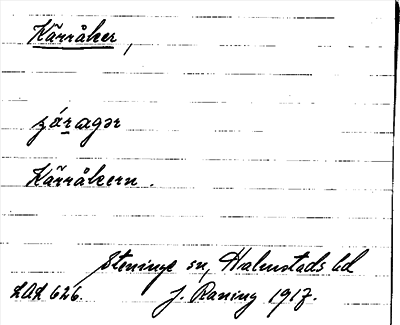 Kärråker,
kåragər
Kärråkern.
Steninge sn, Halmstads hd
LAL 626. J. Raning 1917.